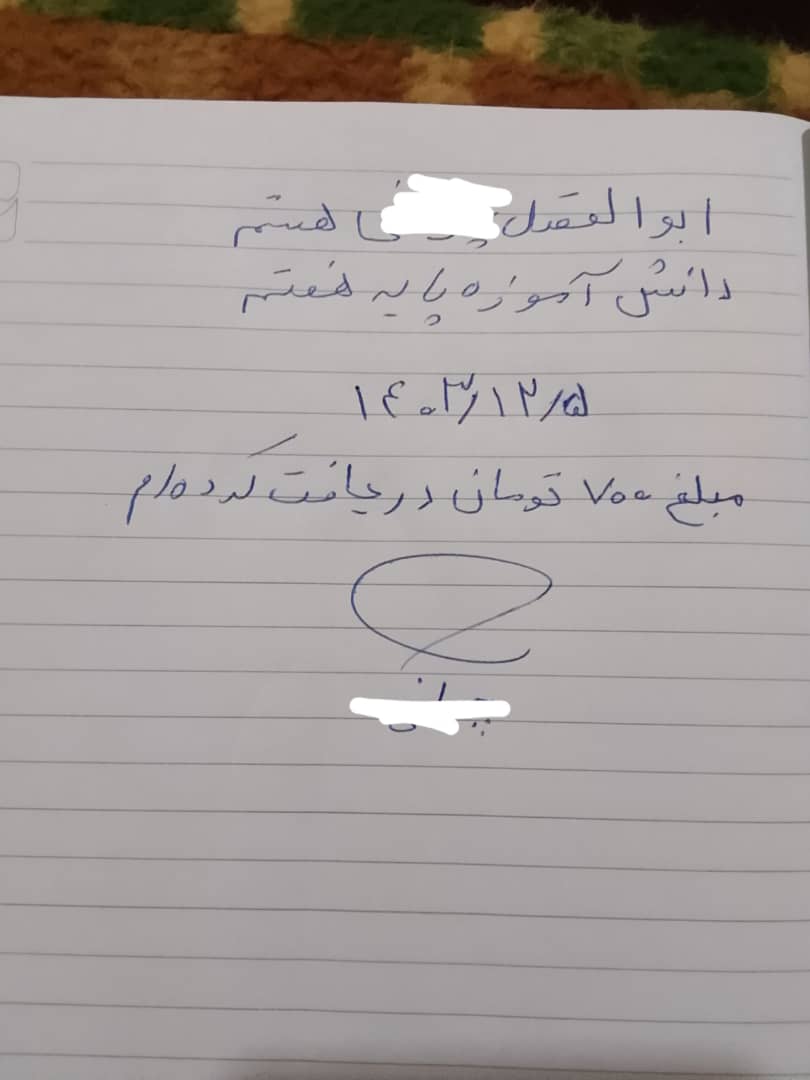 ابوالفضل هستم
دانش آموزه پایه هفتم
۱۴۰۳/۱۲/۵
مبلغ ۷۰۰ تومان دریافت کرده‌ام